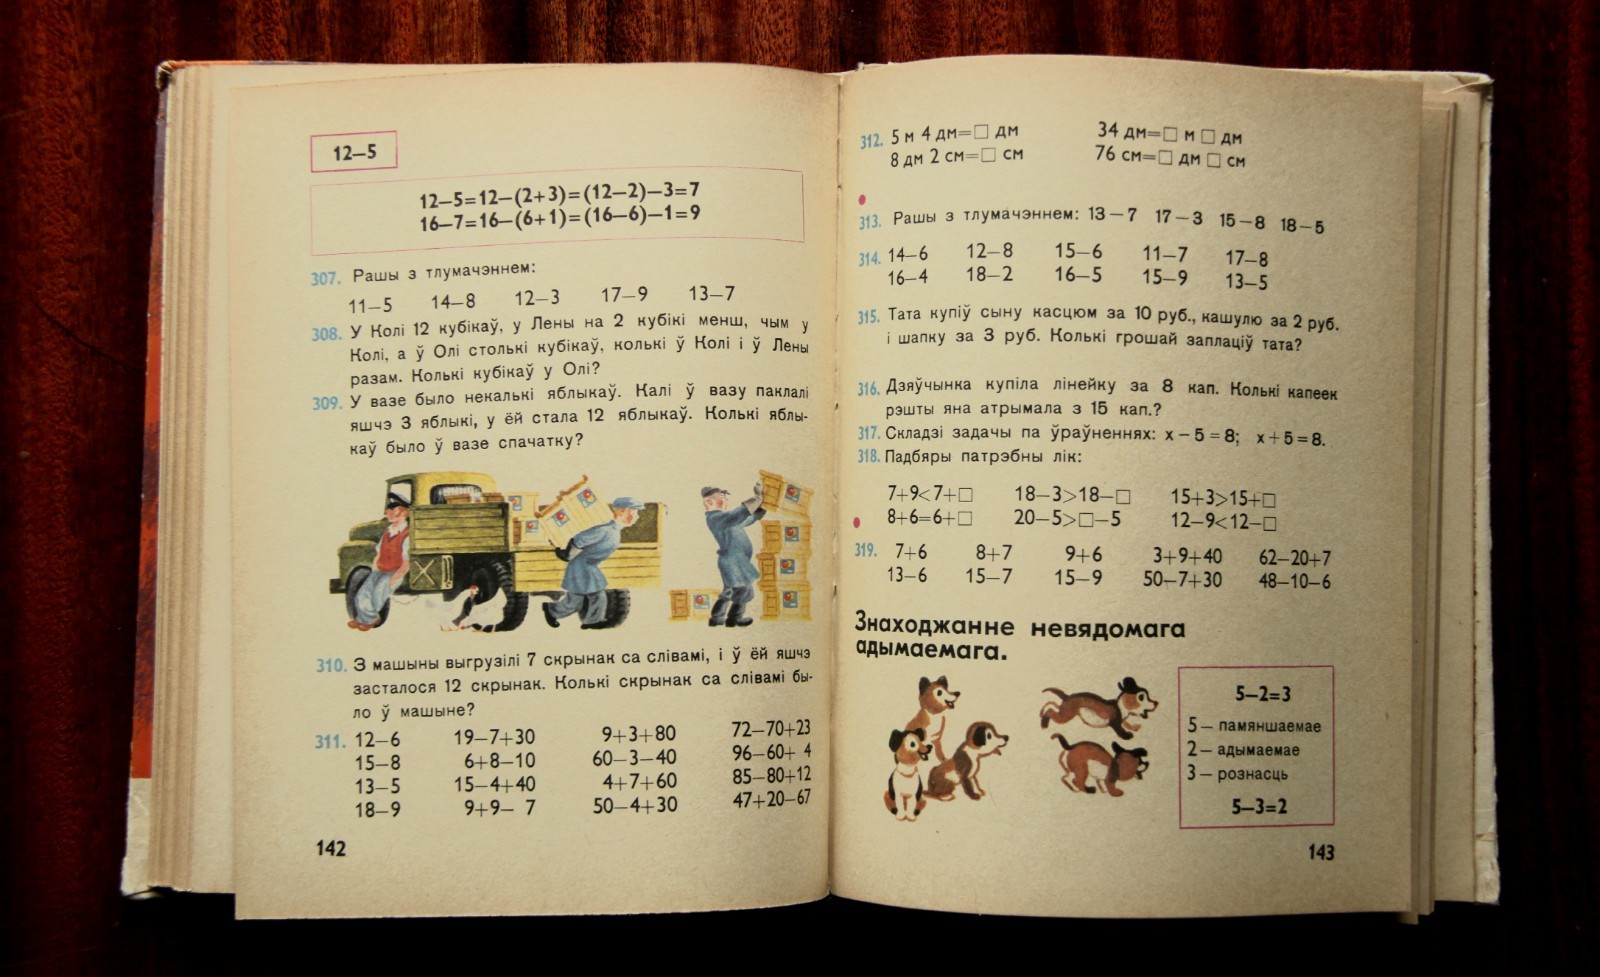 12–5
12–5=12–(2+3)=(12–2)–3=7
16–7=16–(6+1)=(16–6)–1=9
307. Рашы з тлумачэннем:
11–5 14–8 12–3 17–9 13–7
308. У Колі 12 кубікаў, у Лены на 2 кубікі менш, чым у
Колі, а ў Олі столькі кубікаў, колькі ў Колі і ў Лены
разам. Колькі кубікаў у Олі?
309. У вазе было некалькі яблыкаў. Калі ў вазу паклалі
яшчэ 3 яблыкі, у ёй стала 12 яблыкаў. Колькі яблы-
каў было ў вазе спачатку?
310. З машыны выгрузілі 7 скрынак са слівамі, і ў ёй яшчэ
засталося 12 скрынак. Колькі скрынак са слівамі бы-
ло ў машыне?
311. 12–6 19–7+30 9+3+80 72–70+23
15–8 6+8–10 60–3–40 96–60+ 4
13–5 15–4+40 4+7+60 85–80+12
18–9 9+9– 7 50–4+30 47+20–67
142
312. 5 м 4 дм=□ дм 34 дм=□ м □ дм
8 дм 2 см=□ см 76 см=□ дм □ см
313. Рашы з тлумачэннем: 13–7 17–3 15–8 18–5
314. 14–6 12–8 15–6 11–7 17–8
16–4 18–2 16–5 15–9 13–5
315. Тата купіў сыну касцюм за 10 руб., кашулю за 2 руб.
і шапку за 3 руб. Колькі грошай заплаціў тата?
316. Дзяўчынка купіла лінейку за 8 кап. Колькі капеек
рэшты яна атрымала з 15 кап.?
317. Складзі задачы па ўраўненнях: х–5=8; х+5=8.
318. Падбяры патрэбны лік:
7+9<7+□ 18–3>18–□ 15+3>15+□
8+6=6+□ 20–5>□–5 12–9<12–□
319. 7+6 8+7 9+6 3+9+40 62–20+7
13–6 15–7 15–9 50–7+30 48–10–6
Знаходжанне невядомага
адымаемага.
5–2=3
5 – памяншаемае
2 – адымаемае
3 – рознасць
5–3=2
143